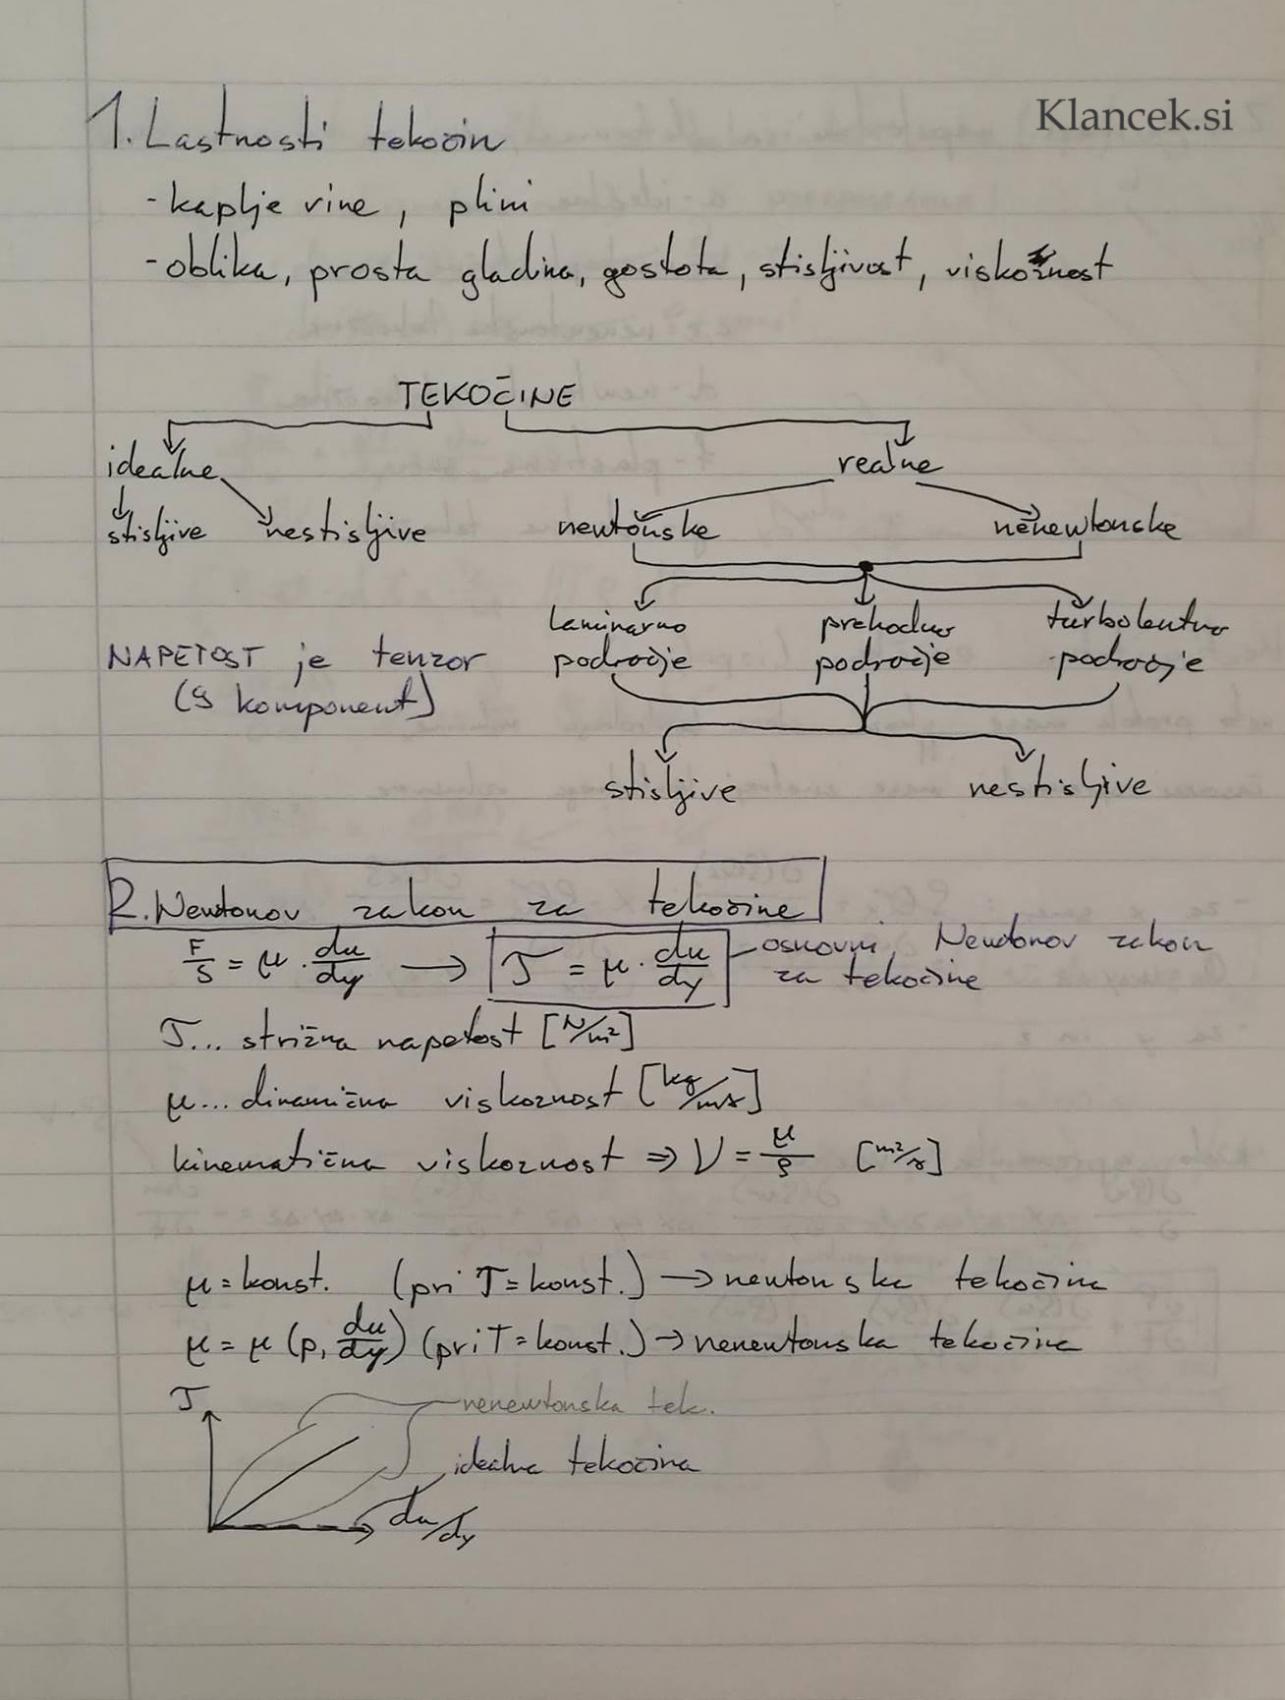 Klancek.si
1. Lastnosti tekočin
- kapljevine, plini
- oblika, prosta gladina, gostota, stisljivost, viskoznost
TEKOČINE
idealne realne
stisljive nestisljive newtonske nenewtonske
laminarno prehodno turbolentno
področje področje področje
NAPETOST je tenzor
(9 komponent)
stisljive nestisljive
2. Newtonov zakon za tekočine
F/S = μ · du/dy → τ = μ · du/dy - osnovni Newonov zakon
za tekočine
τ... strižna napetost [N/m²]
μ... dinamična viskoznost [kg/ms]
kinematična viskoznost ⇒ ν = μ/ρ [m²/s]
μ = konst. (pri T = konst.) → newtonska tekočina
μ = μ (p, du/dy) (pri T = konst.) → nenewtonska tekočina
τ
nenewtonska tek.
idealna tekočina
du/dy